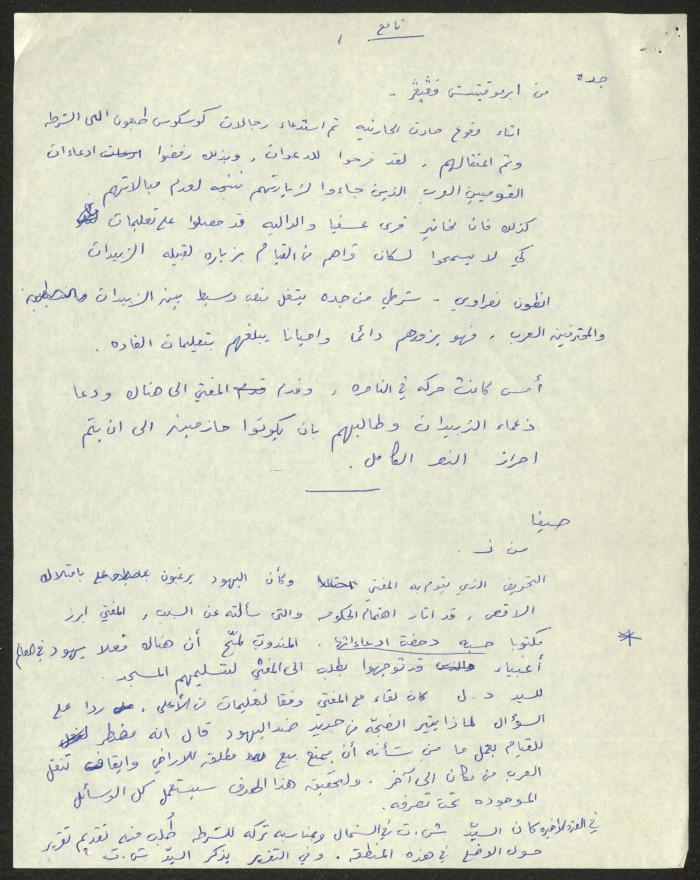 تابع
جده
من ابرموفيتش فڤيڤر -
اثناء وقوع حادث الحارثيه تم استدعاء رجالات كوسكوس طبعون الى الشرطه
وتم اعتقالهم . لقد فرحوا للدعوات . وبذلك رفضوا ادعاءات
القوميين العرب الذين جاءوا لزيارتهم نتيجه لعدم مبالاتهم .
كذلك فان مخاتير قرى عسفيا والداليه قد حصلوا على تعليمات
كي لا يسمحوا لسكان قراهم من القيام بزياره لقبيله الزبيدات
انطون نفراوي - شرطي من جده يشغل منصب وسيط بين الزبيدات
والمحترفين العرب . فهو يزورهم دائما واحيانا يبلغهم بتعليمات القاده .
أمس كانت حركه في الناصره . وقدم المفتي الى هناك ودعا
زعماء الزبيدات وطالبهم بان يكونوا حازمين الى ان يتم
احراز النصر الكامل .
حيفا
من ن .
التخويف الذي يقوم به المفتي وكأن اليهود يرغبون بامتلاك
الاقصى , قد اثار اهتمام الحكومه والتي سألته عن السبب , المفتي ابرز
مكتوبا دحضت ادعاءاتها . المندوب لمّح أن هناك فعلا يهود في العالم
أغبياء قد توجهوا بطلب الى المفتي لتسليمهم المسجد .
للسيد د . ل كان لقاء مع المفتي وفقا لتعليمات من الأعلى . ردا على
السؤال لماذا يثير الضجّه من جديد ضد اليهود قال انه مضطر
للقيام بعمل ما من شأنه أن يمنع بيع مطلقه للاراضي وايقاف تنقل
العرب من مكان الى آخر . ولتحقيق هذا الهدف سيستعمل كل الوسائل
الموجوده تحت تصرفه .
في الفتره الاخيره كان السيّد ش . ت في الشمال وبمناسبه تركه للشرطه طُلب منه تقديم تقرير
حول الوضع في هذه المنطقه . وفي التقرير يذكر السيّد ش . ت